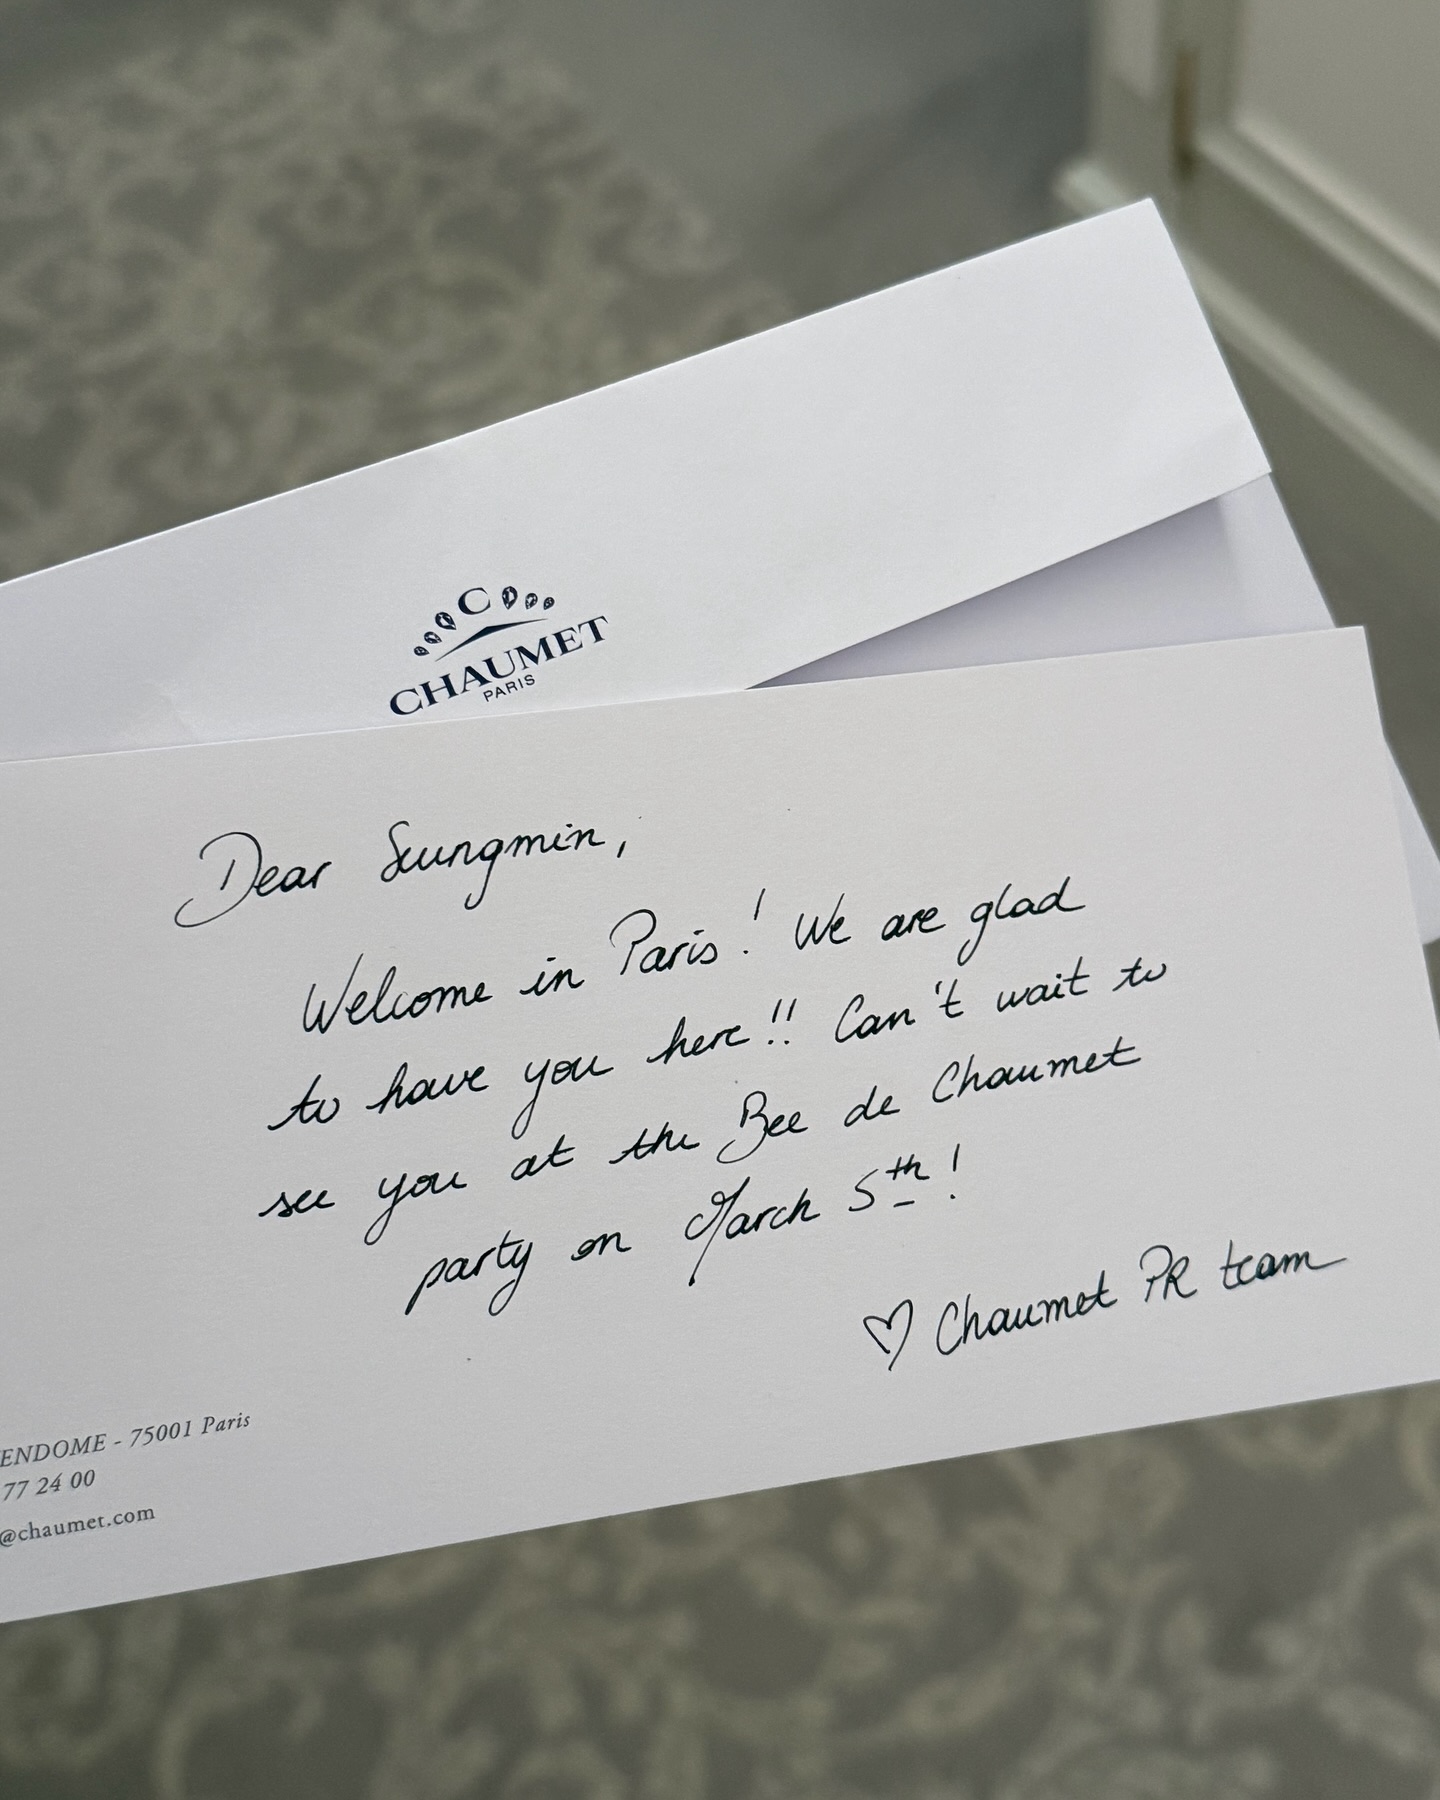 C
CHAUMET
PARIS
Dear Seungmin,
Welcome in Paris! We are glad
to have you here!! Can't wait to
see you at the Bee de Chaumet
party on March 5th!
♡ Chaumet PR team
ENDOME - 75001 Paris
77 24 00
@chaumet.com